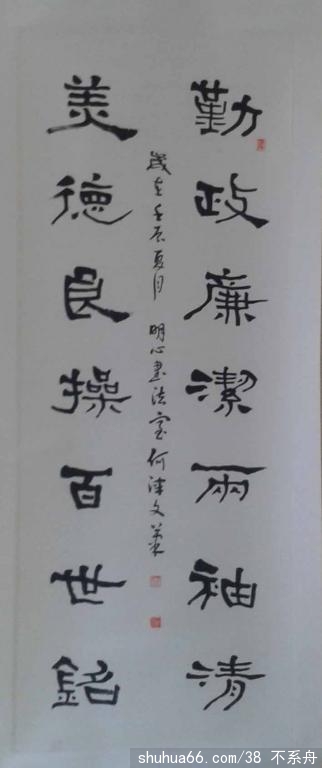 勤政廉潔兩袖清
歲在壬辰夏月 明心書法室 何津文篆
美德良操百世銘
shuhua66.com/38 不系舟